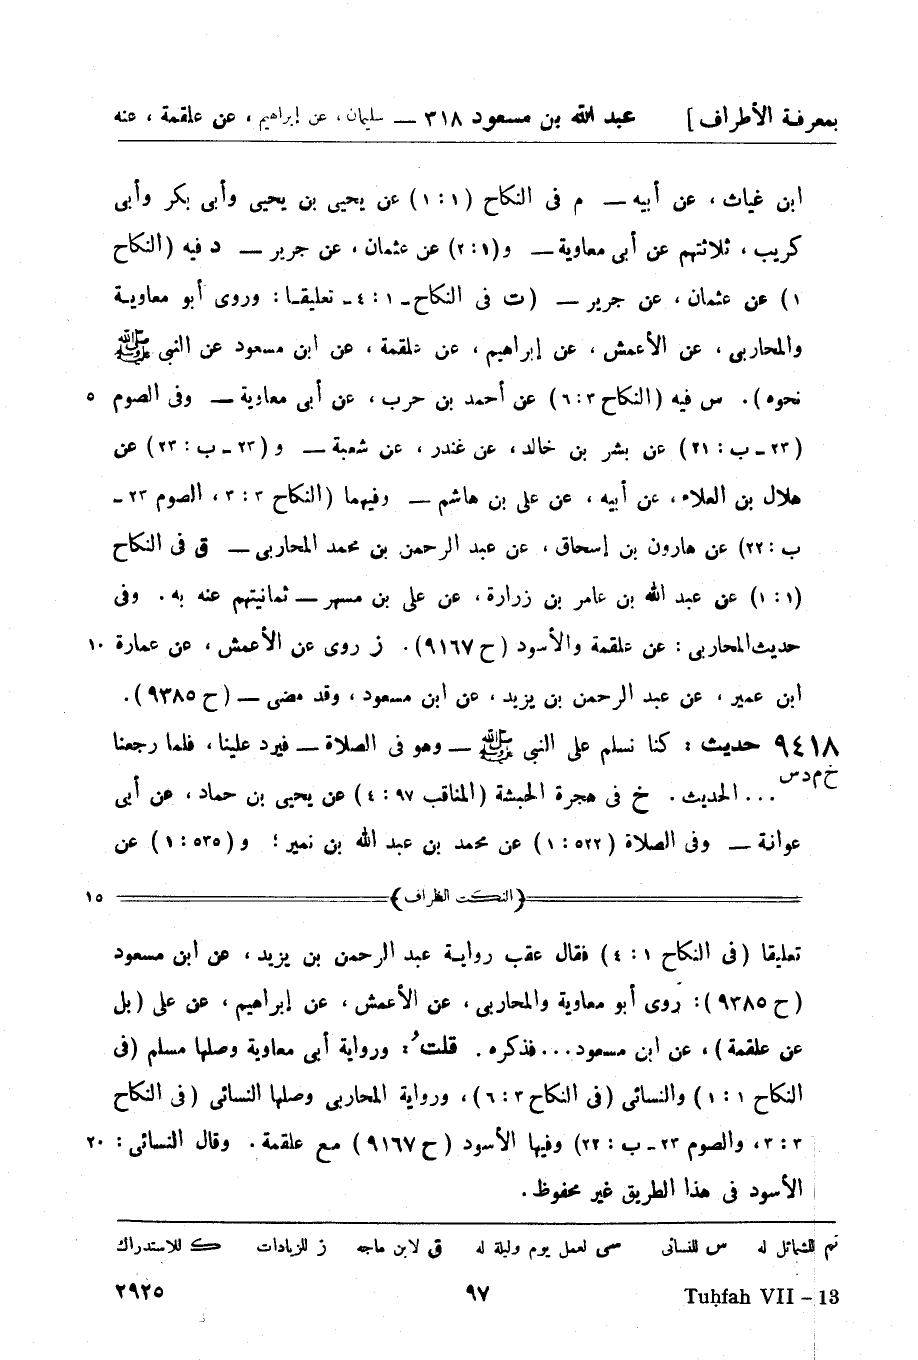 بمعرفة الأطراف] عبد الله بن مسعود ٣١٨ — سليمان، عن إبراهيم، عن علقمة، عنه
ابن غياث، عن أبيه — م فى النكاح (١:١) عن يحيى بن يحيى وأبى بكر وأبى
كريب، ثلاثتهم عن أبى معاوية — و(٢:١) عن عثمان، عن جرير — د فيه (النكاح
١) عن عثمان، عن جرير — (ت فى النكاح ـ ١ : ٤ ـ تعليقا: وروى أبو معاوية
والمحاربى، عن الأعمش، عن إبراهيم، عن علقمة، عن ابن مسعود عن النبى ﷺ
نحوه). س فيه (النكاح ٣:٦) عن أحمد بن حرب، عن أبى معاوية — وفى الصوم ٥
(٢٣ ـ ب : ٢١) عن بشر بن خالد، عن غندر، عن شعبة — و (٢٣ ـ ب : ٢٣) عن
هلال بن العلاء، عن أبيه، عن على بن هاشم — وفيهما (النكاح ٣ : ٣، الصوم ٢٣ ـ
ب : ٢٢) عن هارون بن إسحاق، عن عبد الرحمن بن محمد المحاربى — ق فى النكاح
(١:١) عن عبد الله بن عامر بن زرارة، عن على بن مسهر — ثمانيتهم عنه به. وفى
حديث المحاربى : عن علقمة والأسود (ح ٩١٦٧). ز روى عن الأعمش، عن عمارة ١٠
ابن عمير، عن عبد الرحمن بن يزيد، عن ابن مسعود، وقد مضى — (ح ٩٣٨٥).
٩٤١٨ حديث : كنا نسلم على النبى ﷺ — وهو فى الصلاة — فيرد علينا، فلما رجعنا
خ م د س ... الحديث. خ فى هجرة الحبشة (المناقب ٩٧ : ٤) عن يحيى بن حماد، عن أبى
عوانة — وفى الصلاة (٥٢٢ : ١) عن محمد بن عبد الله بن نمير؛ و(٥٣٥ : ١) عن
(النكت الظراف) ١٥
تعليقا (فى النكاح ١ : ٤) فقال عقب رواية عبد الرحمن بن يزيد، عن ابن مسعود
(ح ٩٣٨٥): روى أبو معاوية والمحاربى، عن الأعمش، عن إبراهيم، عن على (بل
عن علقمة)، عن ابن مسعود... فذكره. قلتُ: ورواية أبى معاوية وصلها مسلم (فى
النكاح ١ : ١) والنسائى (فى النكاح ٣ : ٦)، ورواية المحاربى وصلها النسائى (فى النكاح
٣ : ٣، والصوم ٢٣ ـ ب : ٢٢) وفيها الأسود (ح ٩١٦٧) مع علقمة. وقال النسائى : ٢٠
الأسود فى هذا الطريق غير محفوظ.
تم للشمائل له س للنسائى سى لعمل يوم وليلة له ق لابن ماجه ز للزيادات ك للاستدراك
Tuḥfah VII – 13 ٩٧ ٢٩٢٥